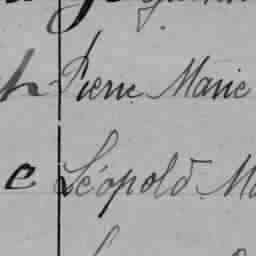 Pierre Marie
e Léopold Ma